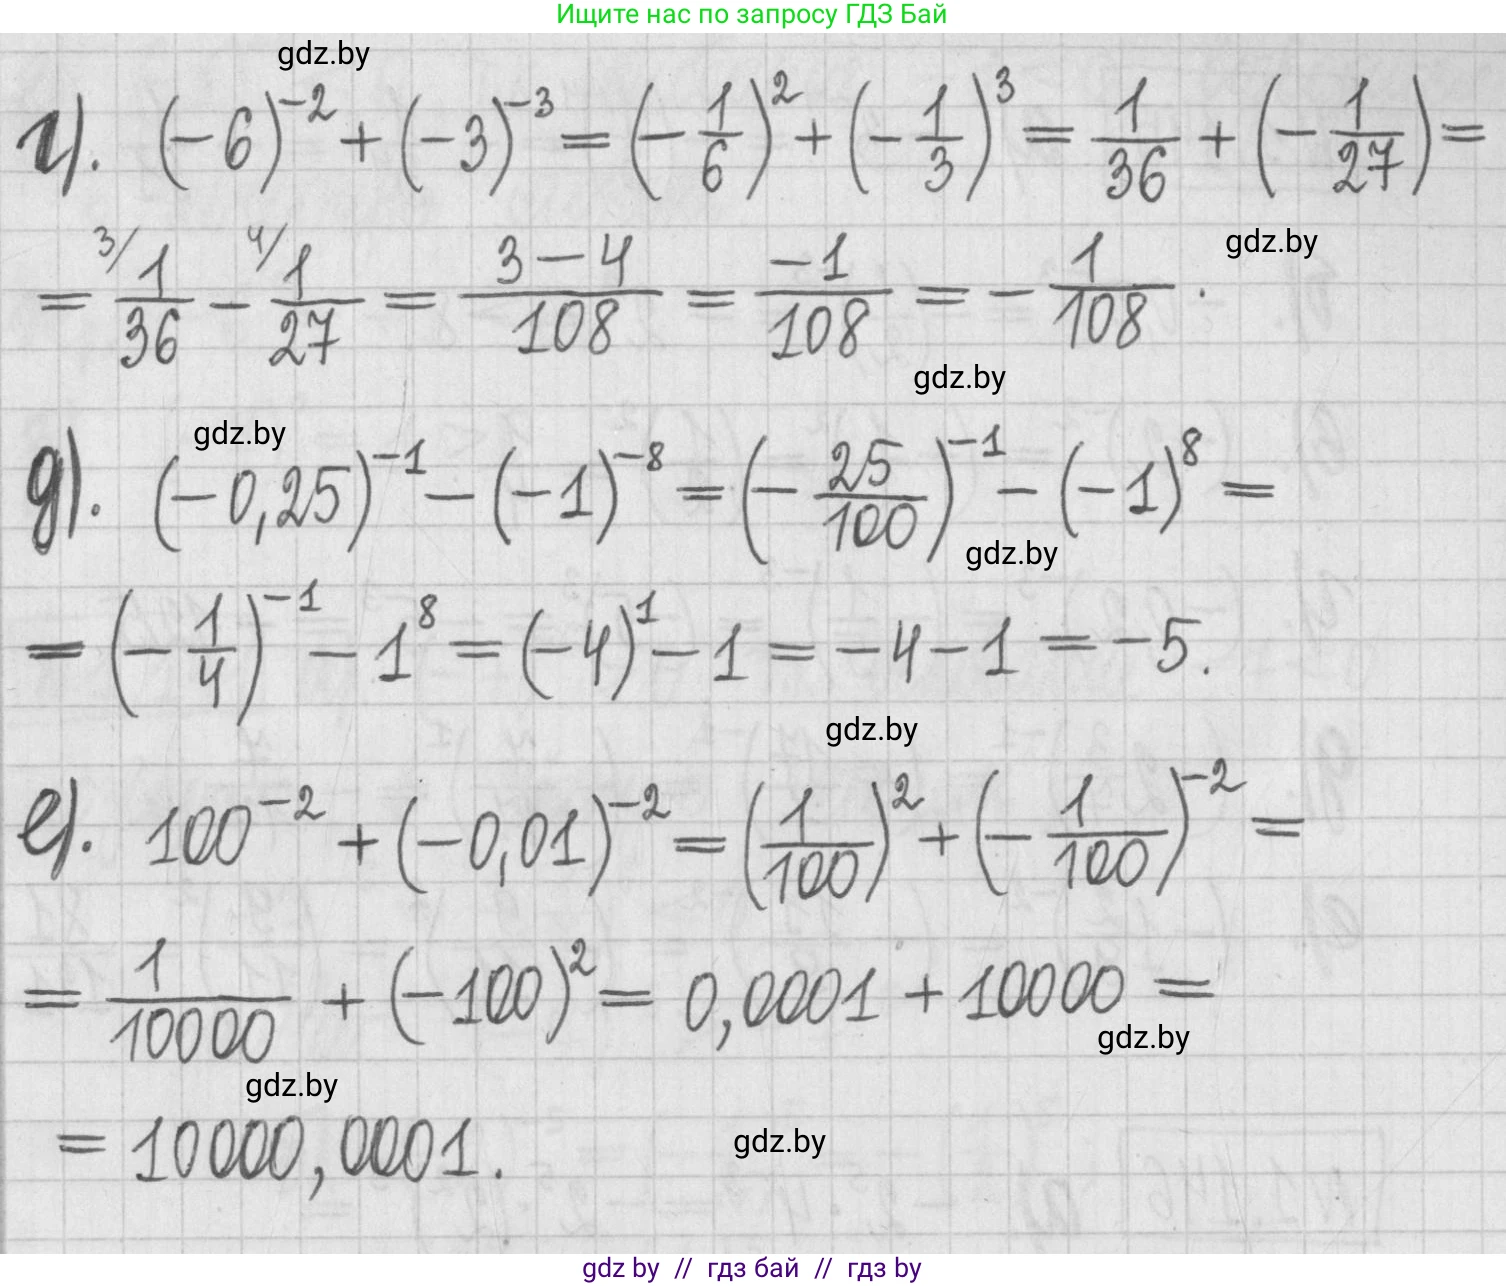 Ищите нас по запросу ГДЗ Бай
gdz.by
г). (-6)^{-2} + (-3)^{-3} = (-\frac{1}{6})^2 + (-\frac{1}{3})^3 = \frac{1}{36} + (-\frac{1}{27}) =
= ^{3/}\frac{1}{36} - ^{4/}\frac{1}{27} = \frac{3-4}{108} = \frac{-1}{108} = -\frac{1}{108}.
gdz.by
gdz.by
gdz.by
д). (-0,25)^{-1} - (-1)^{-8} = (-\frac{25}{100})^{-1} - (-1)^8 =
gdz.by
= (-\frac{1}{4})^{-1} - 1^8 = (-4)^1 - 1 = -4 - 1 = -5.
gdz.by
е). 100^{-2} + (-0,01)^{-2} = (\frac{1}{100})^2 + (-\frac{1}{100})^{-2} =
= \frac{1}{10000} + (-100)^2 = 0,0001 + 10000 =
gdz.by
gdz.by
= 10000,0001.
gdz.by
gdz by // гдз бай // гдз by